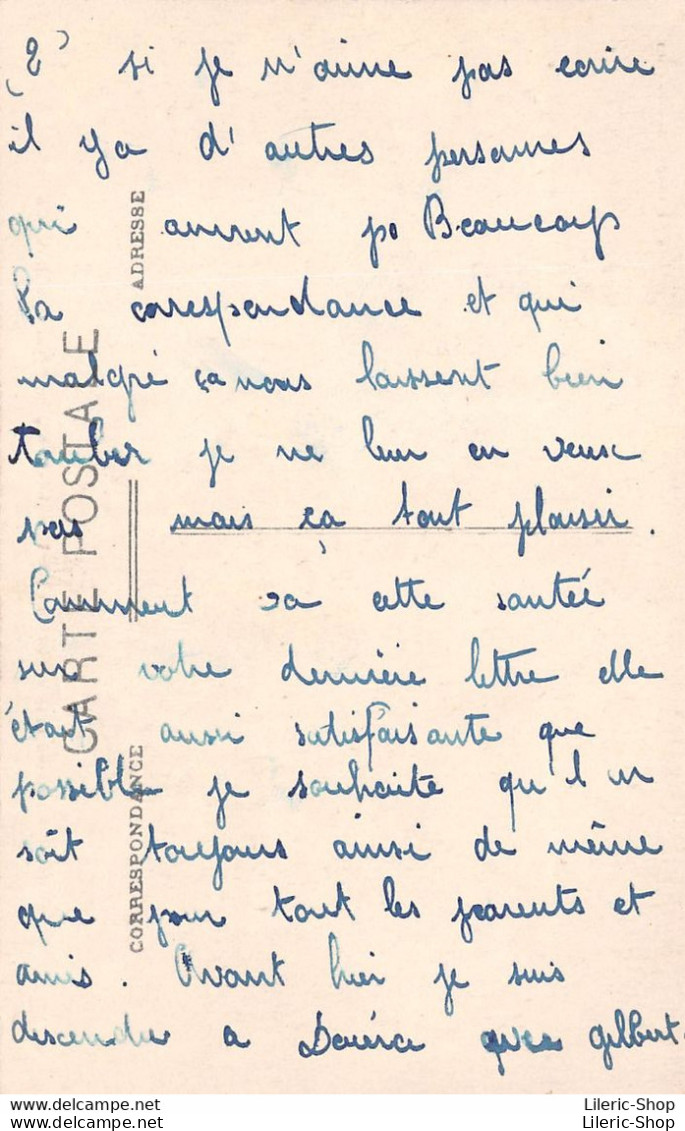 (2) si je n'aime pas ecrire
il ya d'autres personnes
qui aiment Beaucoup
la corespondance et qui
malgré ça nous laissent bien
tomber je ne leur en veux
pas mais ça fait plaisir.
Comment va cette santée
sur votre dernière lettre elle
était aussi satisfaisante que
possible je souhaite qu'il en
soit toujours ainsi de même
que pour tout les parents et
amis. Avant hier je suis
descendu a avec gilbert.
ADRESSE
CARTE POSTALE
CORRESPONDANCE
Lileric-Shop
Lileric-Shop
Lileric-Shop
Lileric-Shop